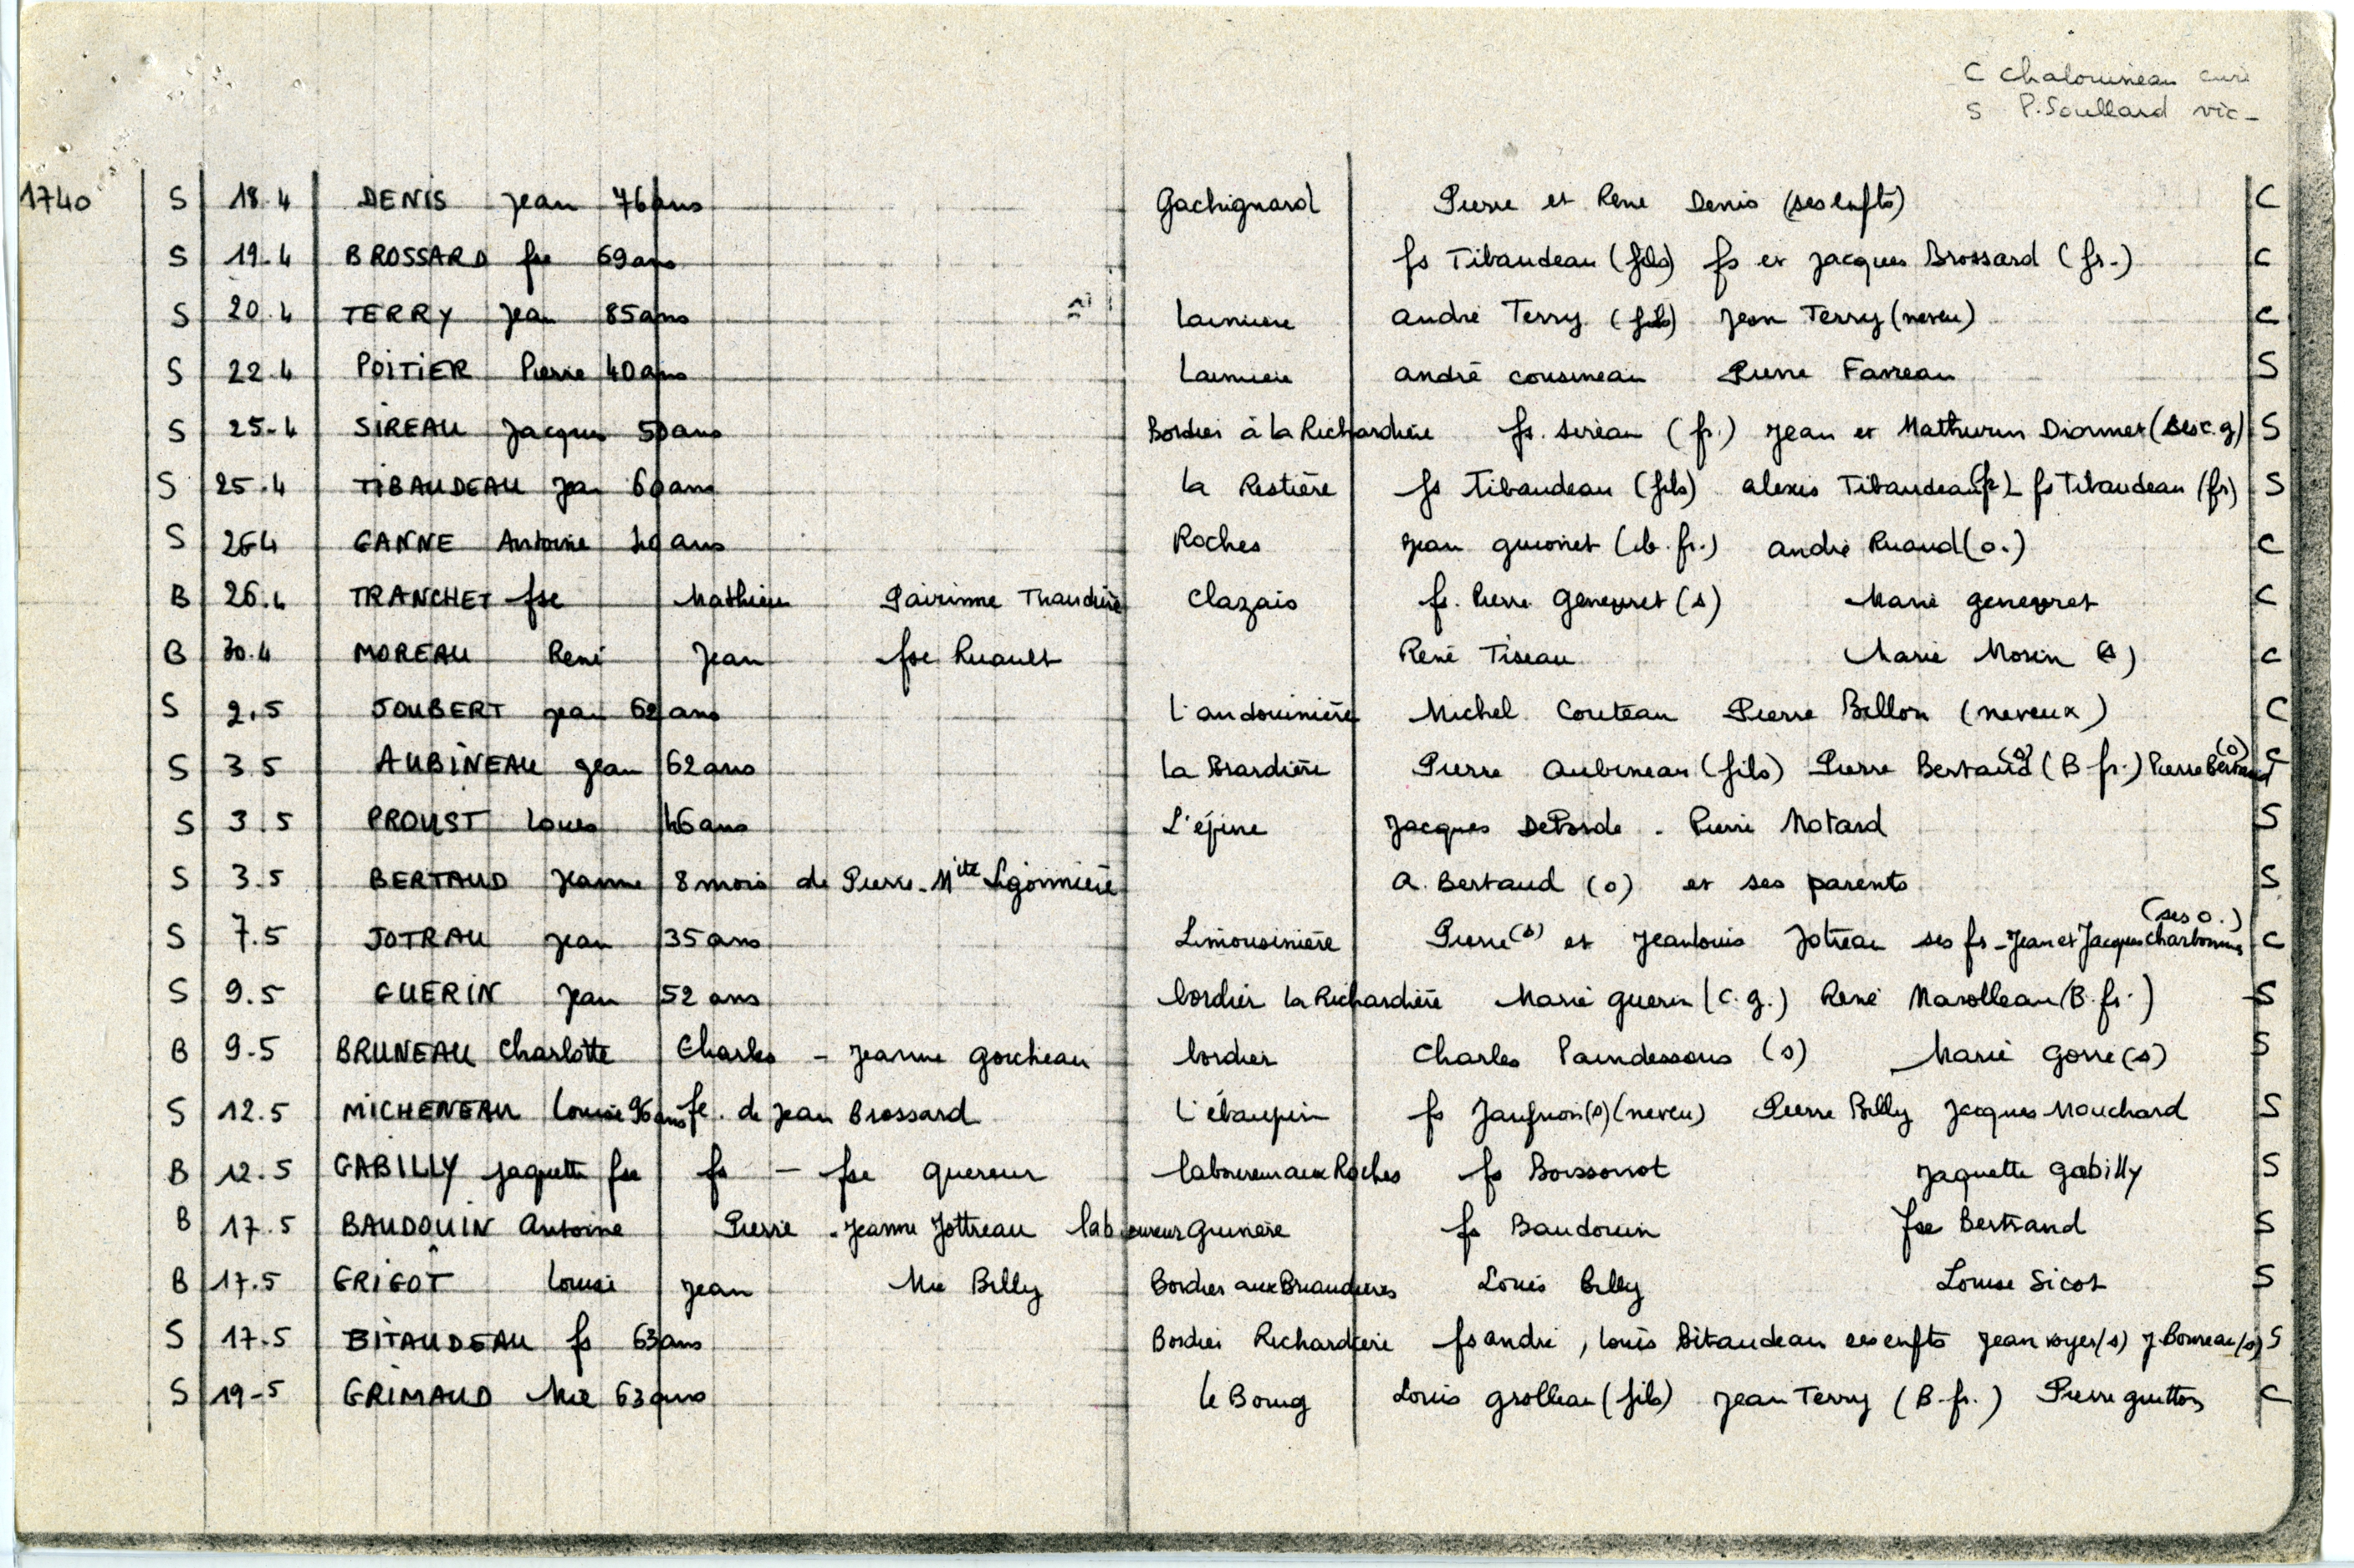 C Chalouineau curé
S P. Soullard vic-
1740 S 18.4 DENIS Jean 76 ans Gachignard Pierre et René Denis (ses enfts) C
S 19-4 BROSSARD fse 69 ans fs Tibaudeau (fils) fs et Jacques Brossard (fr.) C
S 20.4 TERRY Jean 85 ans André Terry (fils) Jean Terry (neveu) C
S 22.4 POITIER Pierre 40 ans André Cousineau Pierre Favreau S
S 25-4 SIREAU Jacques 50 ans Bordier à la Richardière fs. Sireau (fr.) Jean et Mathurin (ses c.g) S
S 25.4 TIBAUDEAU Jean 60 ans La Restière fs Tibaudeau (fils) alexis Tibaudeau fs Tibaudeau (fr) S
S 26 4 GANNE Antoine ans Roches Jean Guionet (b. fr.) André Ruaud (o.) C
B 26.4 TRANCHET fse Mathieu Clazais fs. Pierre (s) Marie C
B 30.4 MOREAU René Jean fse Ruault René Tiseau Marie Morin (s) C
S 2.5 JOUBERT Jean 62 ans L'audouinière Michel Couteau Pierre Billon (neveux) C
S 3 5 AUBINEAU Jean 62 ans La Brardière Pierre Aubineau (fils) Pierre Bertaud (B fr.) Pierre Bertaud (o)
S 3.5 PROUST Louis 46 ans L'épine Jacques . Pierre Motard S
S 3.5 BERTAUD Jeanne 8 mois de Pierre - Mite Ligonnière A. Bertaud (o) et ses parents S
S 7.5 JOTRAU Jean 35 ans Limousinière Pierre (s) et Jean Louis Jotreau ses fs - Jean et Jacques (ses o.) C
S 9.5 GUERIN Jean 52 ans bordier la Richardière Marie Guerin (c.g.) René Marolleau (B. fr.) S
B 9.5 BRUNEAU Charlotte Charles - Jeanne Gorcheau bordier Charles Paindessous (s) Marie Gorre (s) S
S 12.5 MICHENEAU Louise 96 ans fe. de Jean Brossard L'ébaupin fs (s) (neveu) Pierre Billy Jacques Mouchard S
B 12.5 GABILLY Jaquette fse fs - fse Quereur laboureur aux Roches fs Boissonot Jaquette Gabilly S
B 17.5 BAUDOUIN Antoine Pierre - Jeanne Jottreau laboureur fs Baudouin fse Bertrand S
B 17.5 GRIGOT Louise Jean Mie Billy Bordier aux Briaudières Louis Billy Louise Sicot S
S 17.5 BITAUDEAU fs 63 ans Bordier Richardière fs André, Louis Bitaudeau ses enfts Jean Royer (s) J. Bonneau (s) S
S 19-5 GRIMAUD Mie 63 ans le Bourg Louis Grolleau (fils) Jean Terry (B. fr.) Pierre Guitton C